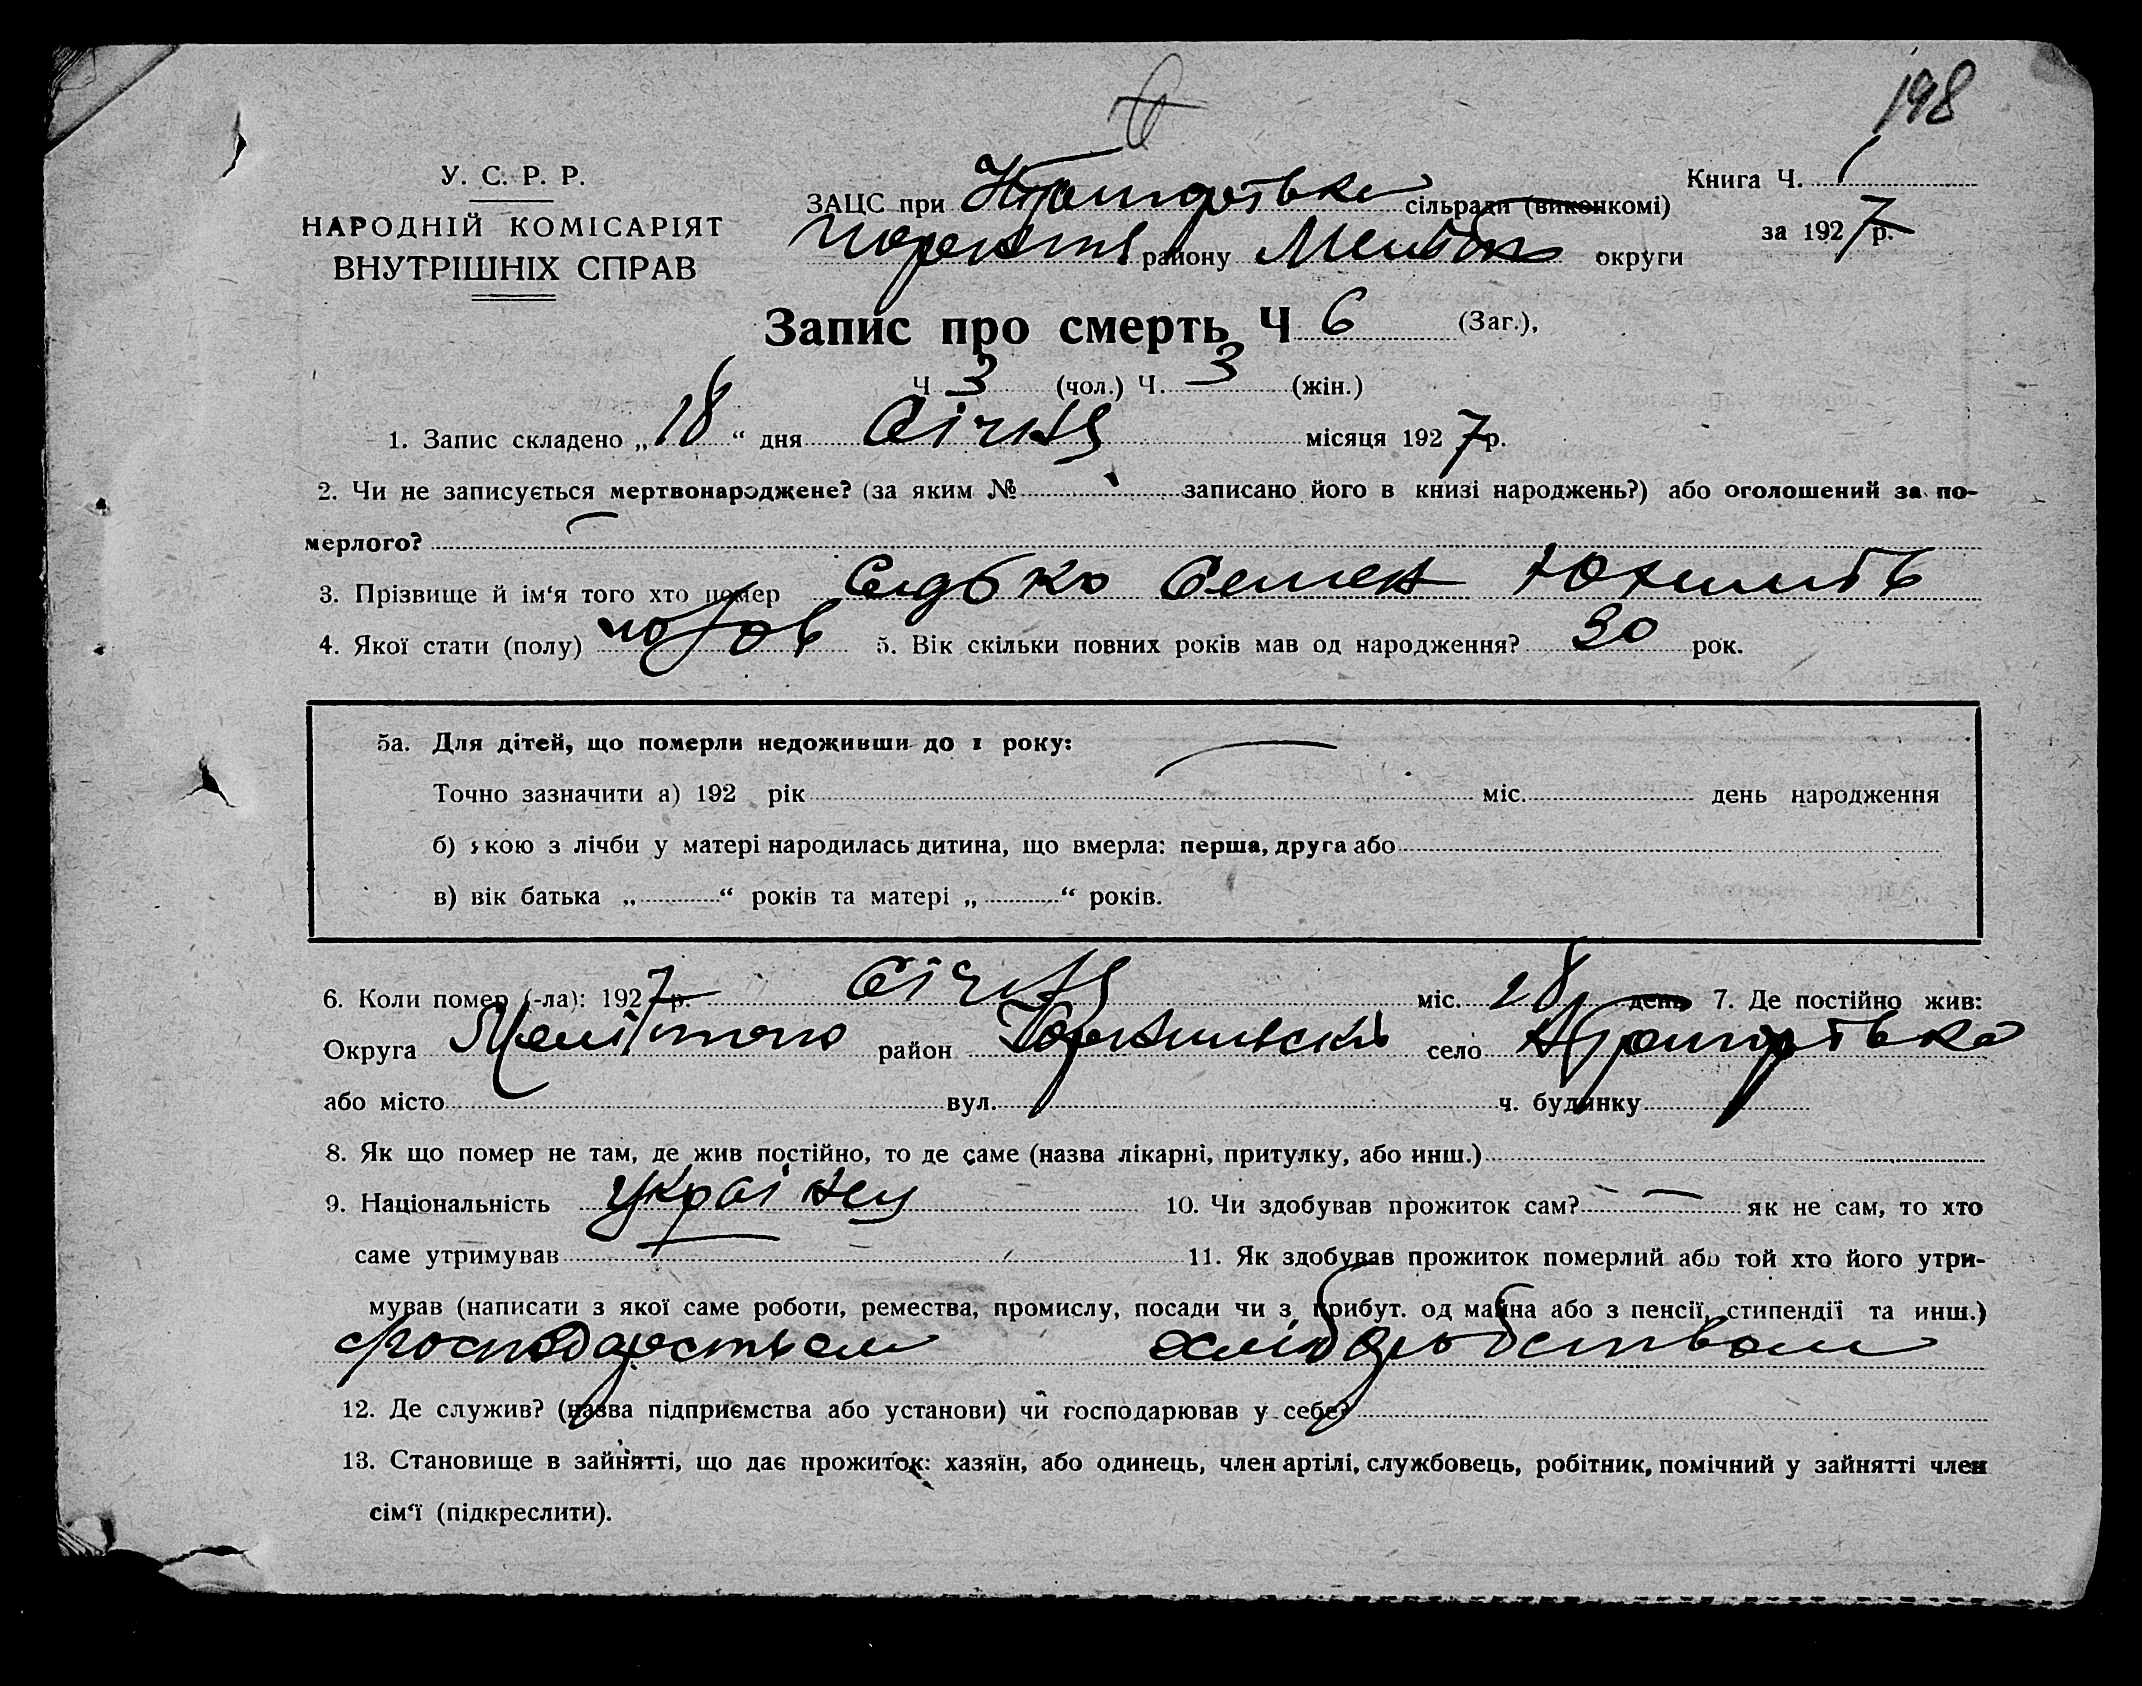 198
У. С. Р. Р.
НАРОДНІЙ КОМІСАРІЯТ
ВНУТРІШНІХ СПРАВ
ЗАЦС при сільради (виконкомі)
району округи
Книга Ч. 1
за 1927 р.
Запис про смерть Ч 6 (Заг.),
Ч 3 (чол.) Ч. 3 (жін.)
1. Запис складено „18“ дня Січня місяця 1927 р.
2. Чи не записується мертвонароджене? (за яким № записано його в книзі народжень?) або оголошений за по-
мерлого?
3. Прізвище й ім‘я того хто помер Семен
4. Якої стати (полу) 5. Вік скільки повних років мав од народження? 30 рок.
5а. Для дітей, що померли недоживши до 1 року:
Точно зазначити а) 192 рік міс. день народження
б) якою з лічби у матері народилась дитина, що вмерла: перша, друга або
в) вік батька „ “ років та матері „ “ років.
6. Коли помер (-ла): 1927 р. Січня міс. 18 день 7. Де постійно жив:
Округа район село
або місто вул. ч. будинку
8. Як що помер не там, де жив постійно, то де саме (назва лікарні, притулку, або инш.)
9. Національність 10. Чи здобував прожиток сам? як не сам, то хто
саме утримував 11. Як здобував прожиток померлий або той хто його утри-
мував (написати з якої саме роботи, ремества, промислу, посади чи з прибут. од майна або з пенсії, стипендії та инш.)
12. Де служив? (назва підприємства або установи) чи господарював у себе?
13. Становище в зайнятті, що дає прожиток: хазяїн, або одинець, член артілі, службовець, робітник, помічний у зайнятті член
сім‘ї (підкреслити).